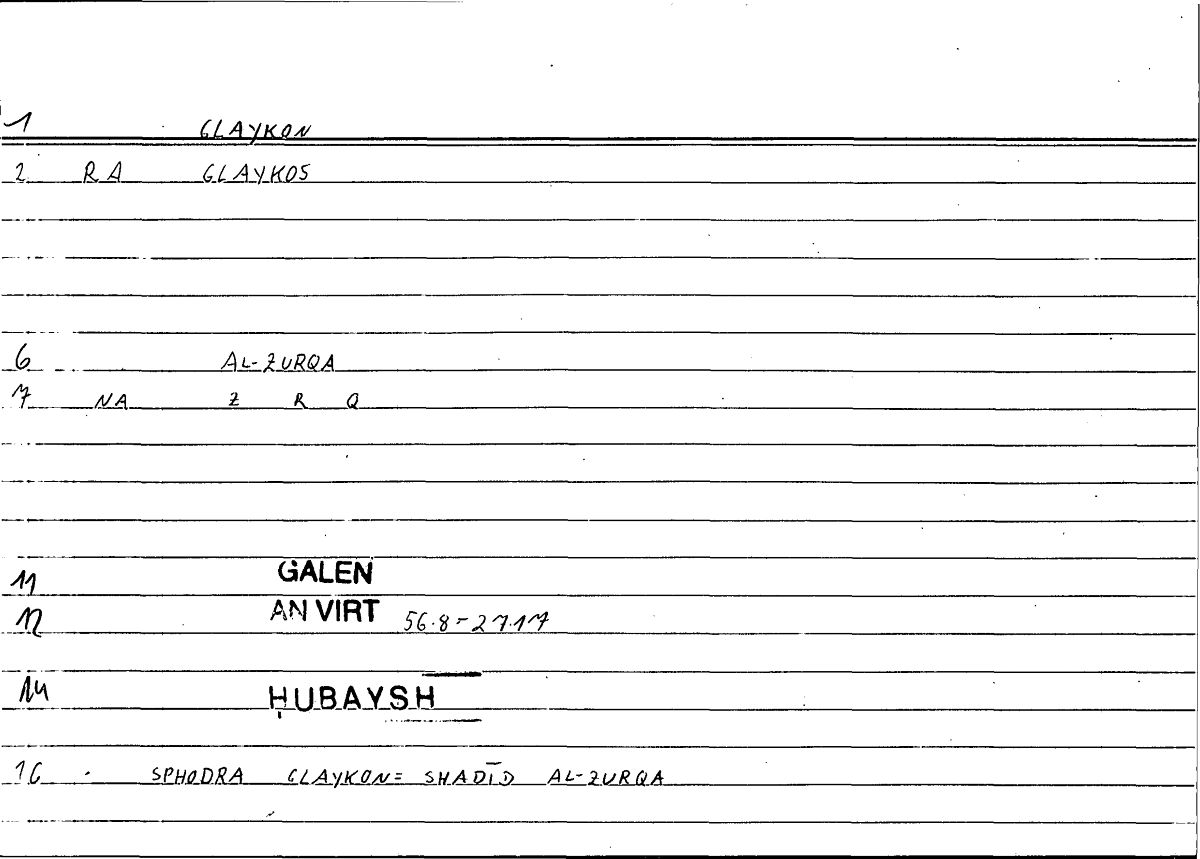 1 GLAYKON
2 RA GLAYKOS
6 AL-ZURQA
7 NA Z R Q
11 GALEN
12 AN VIRT 56.8=27.17
14 ḤUBAYSH
16 SPHODRA GLAYKON= SHADĪD AL-ZURQA